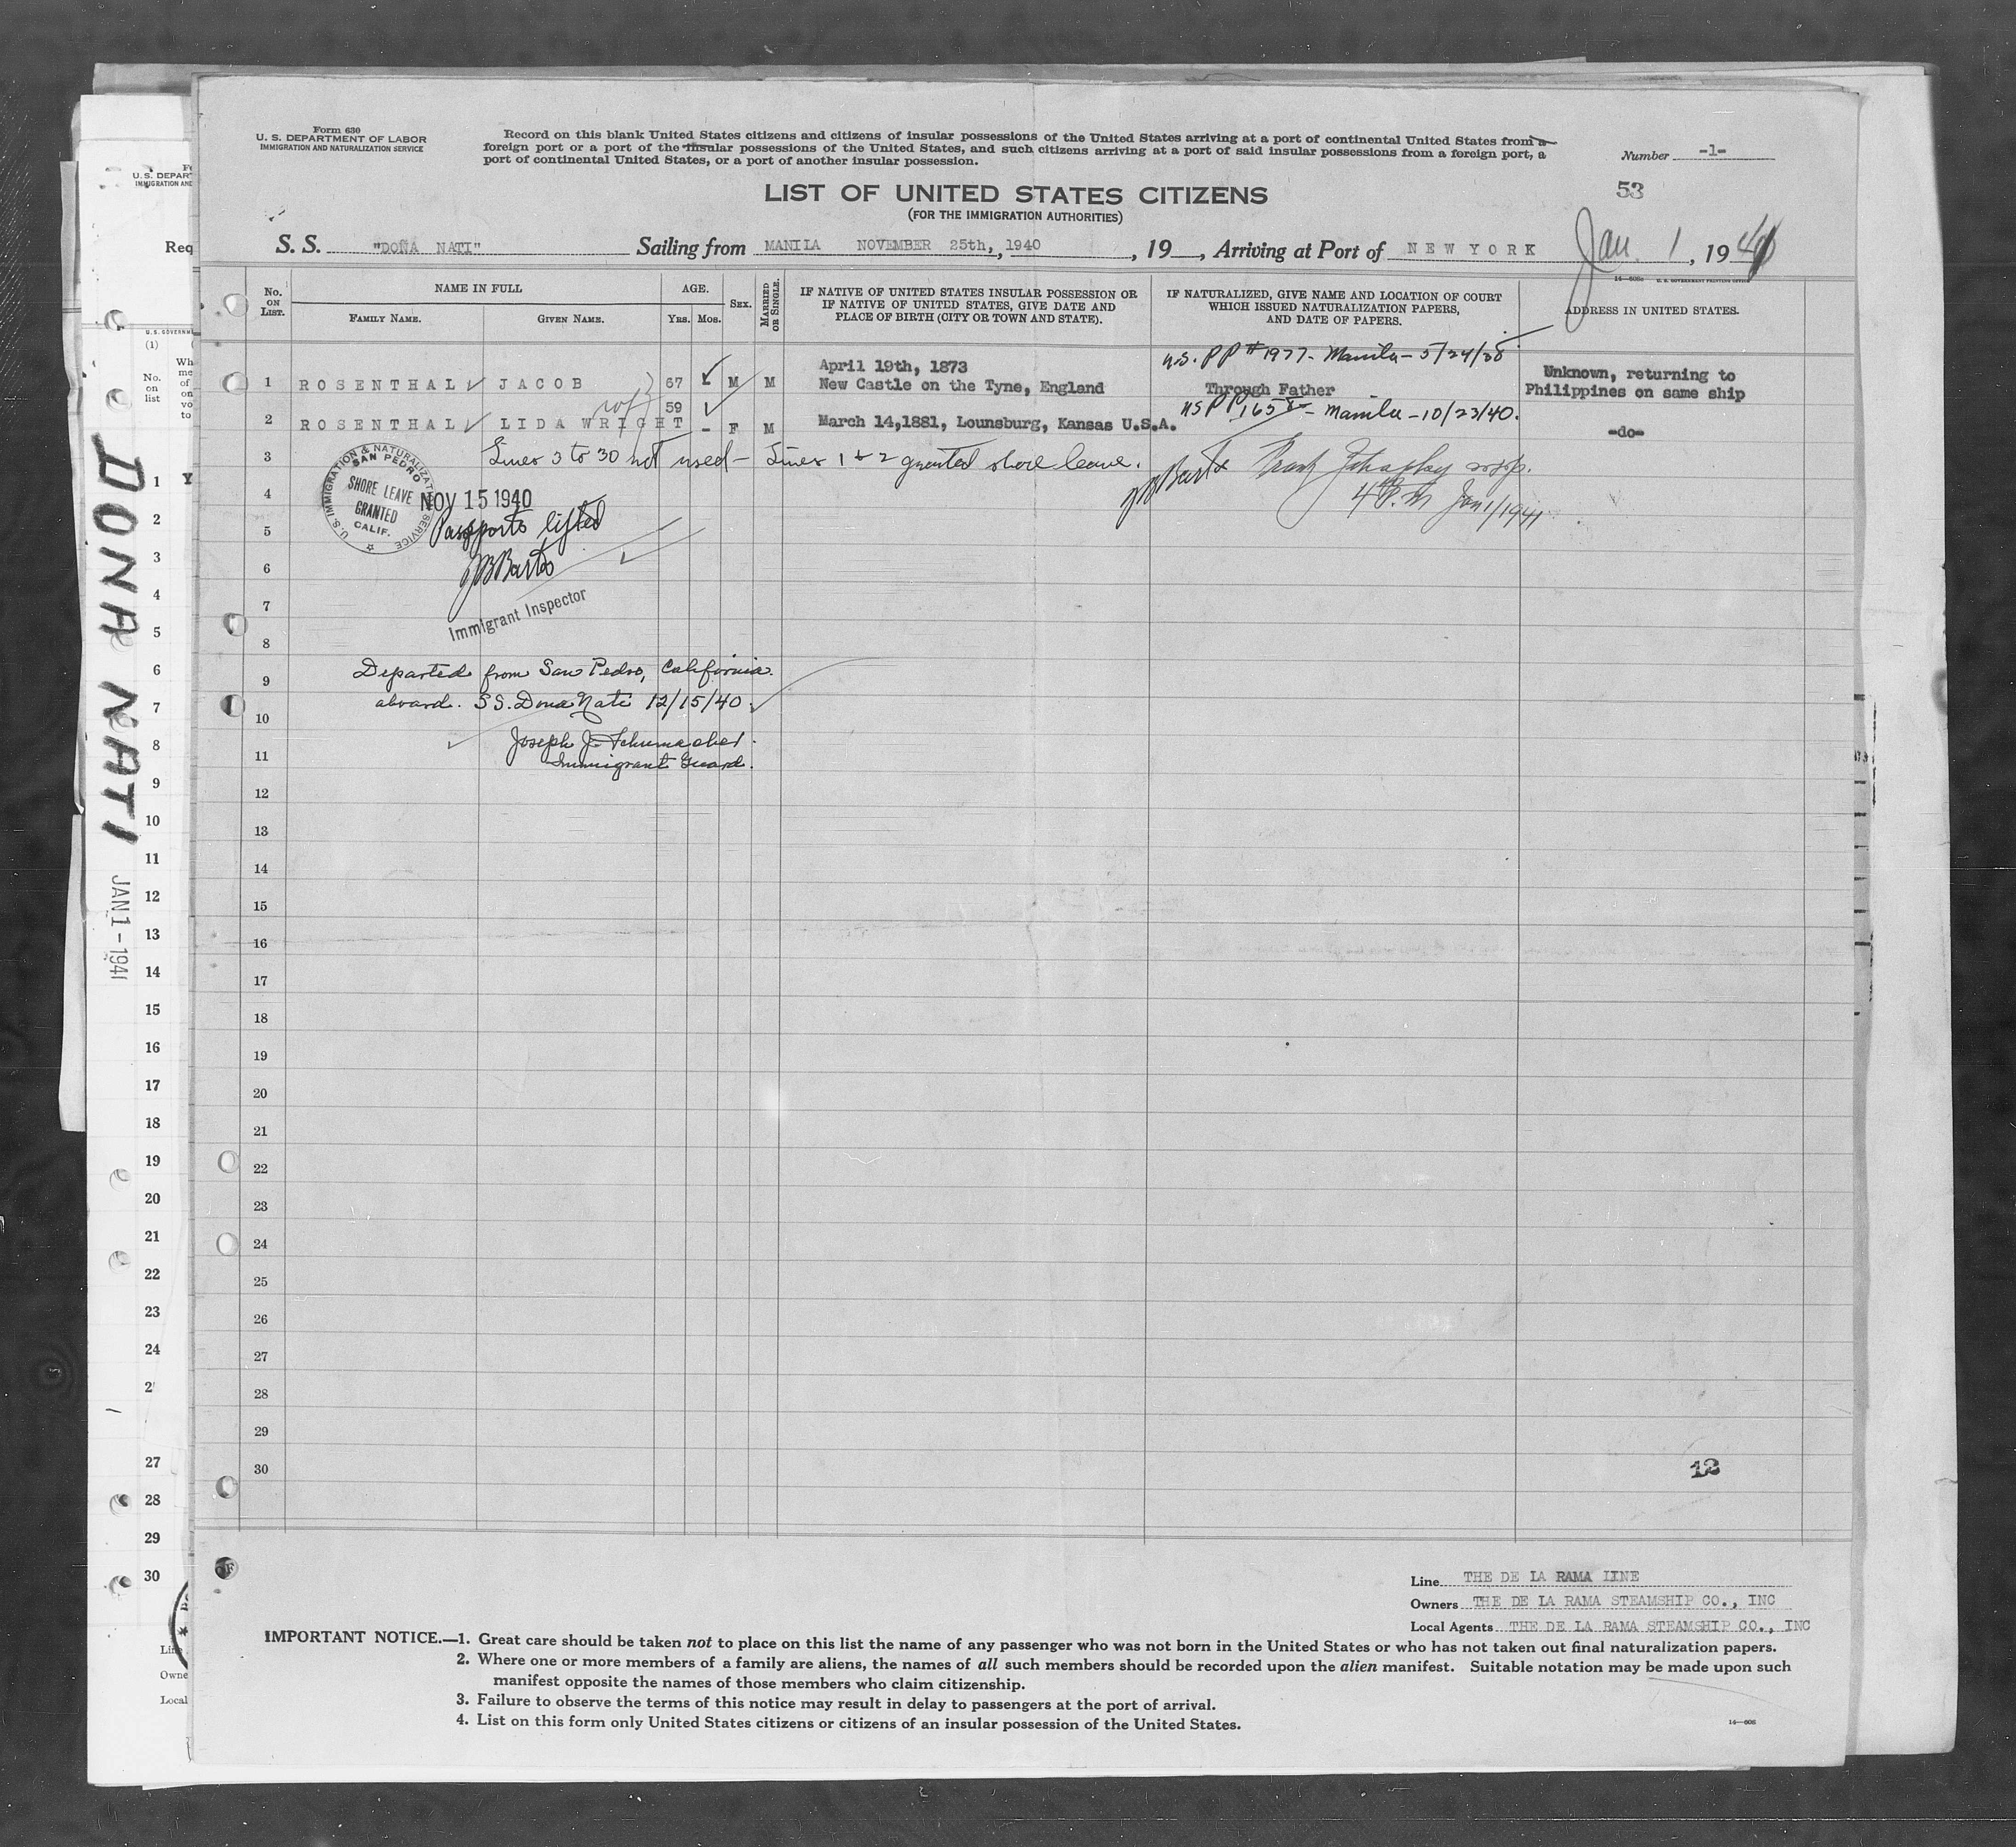 Form 630
U. S. DEPARTMENT OF LABOR
IMMIGRATION AND NATURALIZATION SERVICE
Record on this blank United States citizens and citizens of insular possessions of the United States arriving at a port of continental United States from a
foreign port or a port of the insular possessions of the United States, and such citizens arriving at a port of said insular possessions from a foreign port, a
port of continental United States, or a port of another insular possession.
Number -1-
53
LIST OF UNITED STATES CITIZENS
(FOR THE IMMIGRATION AUTHORITIES)
S. S. "DOÑA NATI" Sailing from MANILA NOVEMBER 25th, 1940, 19 , Arriving at Port of NEW YORK Jan 1, 19
14—608a U. S. GOVERNMENT PRINTING OFFICE
No. ON LIST.
NAME IN FULL
FAMILY NAME.
GIVEN NAME.
AGE.
Yrs. Mos.
SEX.
MARRIED OR SINGLE.
IF NATIVE OF UNITED STATES INSULAR POSSESSION OR
IF NATIVE OF UNITED STATES, GIVE DATE AND
PLACE OF BIRTH (CITY OR TOWN AND STATE).
IF NATURALIZED, GIVE NAME AND LOCATION OF COURT
WHICH ISSUED NATURALIZATION PAPERS,
AND DATE OF PAPERS.
ADDRESS IN UNITED STATES.
U.S. PP # 1977 - Manila - 5/24/38
April 19th, 1873
1 ROSENTHAL JACOB 67 - M M New Castle on the Tyne, England Through Father
Unknown, returning to
Philippines on same ship
wf
59
US PP 1658 - Manila - 10/23/40.
2 ROSENTHAL LIDA WRIGHT - F M March 14,1881, Lounsburg, Kansas U.S.A. -do-
3 Lines 3 to 30 not used - Lines 1 & 2 granted shore leave.
JB Barto
4 P.M Jan 1/1941
U. S. IMMIGRATION & NATURALIZATION SERVICE
SAN PEDRO
SHORE LEAVE
GRANTED
CALIF.
NOV 15 1940
4
Passports lifted
5
JB Barto
6
Immigrant Inspector
7
8
Departed from San Pedro, California
9
aboard. SS. Dona Nati 12/15/40.
10
Joseph J. Schumacher.
Immigrant Guard.
11
12
13
14
15
16
17
18
19
20
21
22
23
24
25
26
27
28
29
30
12
Line THE DE LA RAMA LINE
Owners THE DE LA RAMA STEAMSHIP CO., INC
Local Agents THE DE LA RAMA STEAMSHIP CO., INC
IMPORTANT NOTICE.—1. Great care should be taken not to place on this list the name of any passenger who was not born in the United States or who has not taken out final naturalization papers.
2. Where one or more members of a family are aliens, the names of all such members should be recorded upon the alien manifest. Suitable notation may be made upon such
manifest opposite the names of those members who claim citizenship.
3. Failure to observe the terms of this notice may result in delay to passengers at the port of arrival.
4. List on this form only United States citizens or citizens of an insular possession of the United States.
14—608
U. S. DEPAR
IMMIGRATION AND
Req
U. S. GOVERNM
(1)
No.
on
list
Wh
me
of
on
vo
to
1 Y
2
3
4
5
6
7
8
9
10
11
12
13
14
15
16
17
18
19
20
21
22
23
24
2
27
28
29
30
Owne
Local
DONA NATI
JAN 1 - 1941